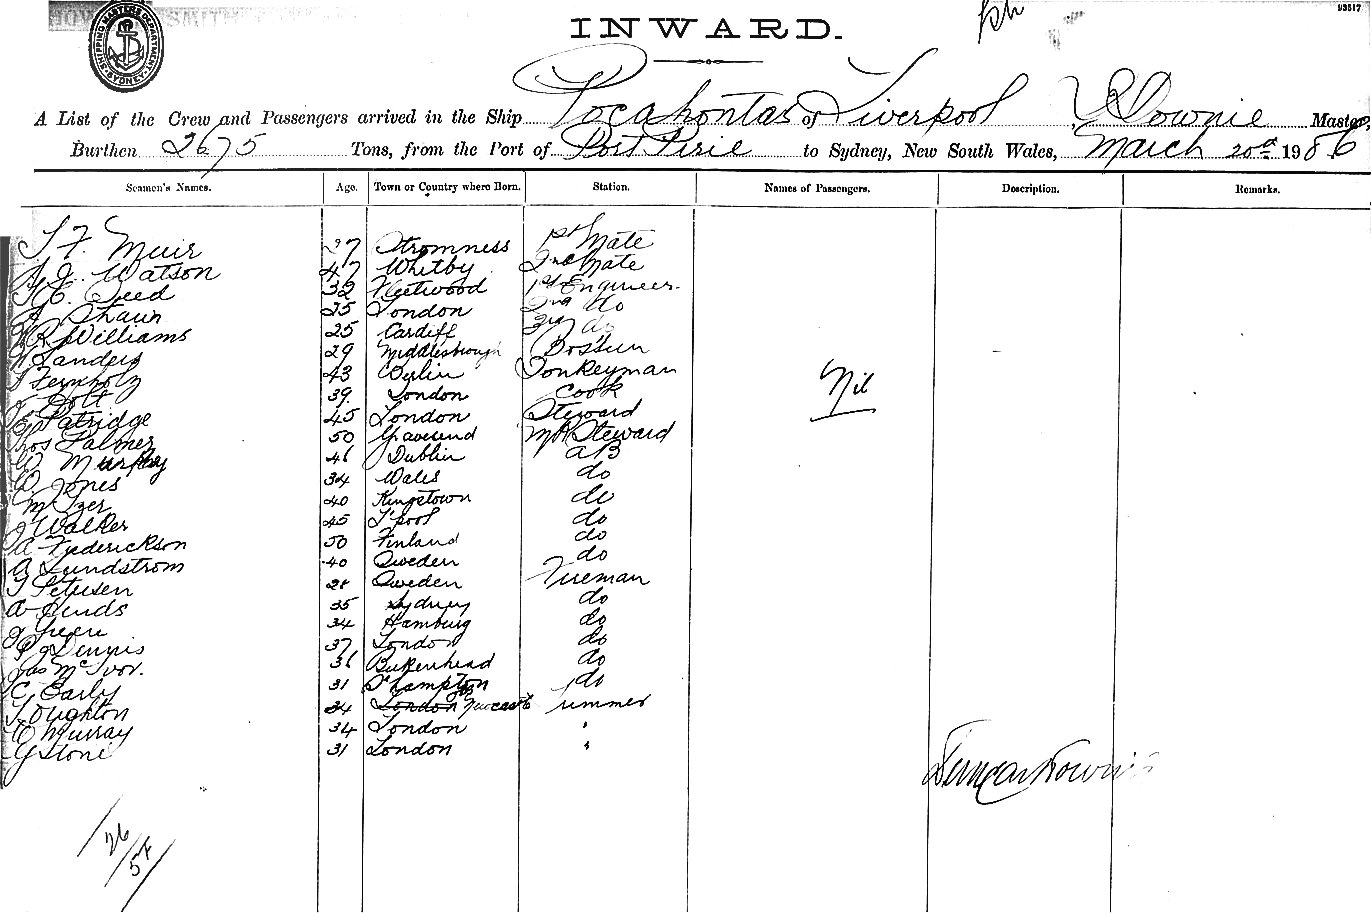 93517
SHIPPING MASTER'S DEPARTMENT SYDNEY
INWARD.
A List of the Crew and Passengers arrived in the Ship Pocahontas of Liverpool, D Downie Master,
Burthen 2675 Tons, from the Port of Port Pirie to Sydney, New South Wales, March 20th 1986
Seamen's Names. Age. Town or Country where Born. Station. Names of Passengers. Description. Remarks.
J F. Muir 37 Stromness 1st Mate
Watson 47 Whitby 2nd Mate
Seed 32 Fleetwood 1st Engineer.
Shaun 25 London 2nd do
R Williams 25 Cardiff 3rd do
Sanders 29 Middlesbrough Bos'sun
Fernholz 43 Berlin Donkeyman
Nil
Holt 39 London Cook
Patridge 45 London Steward
Thos Palmer 50 Gravesend Steward
W Murphy 46 Dublin AB
W Jones 34 Wales do
40 Kingstown do
J Walker 45 L'pool do
A Frederickson 50 Finland do
A Lundstrom 40 Sweden do
Petersen 28 Sweden Fireman
A Hinds 35 Sydney do
J Green 34 Hamburg do
P J Dennis 37 London do
Jas McIvor. 36 Birkenhead do
C Early 31 S'hampton do
Oughton 34 London Newcastle Trimmer
C Murray 34 London "
G Stone 31 London "
Duncan Downie
26/54